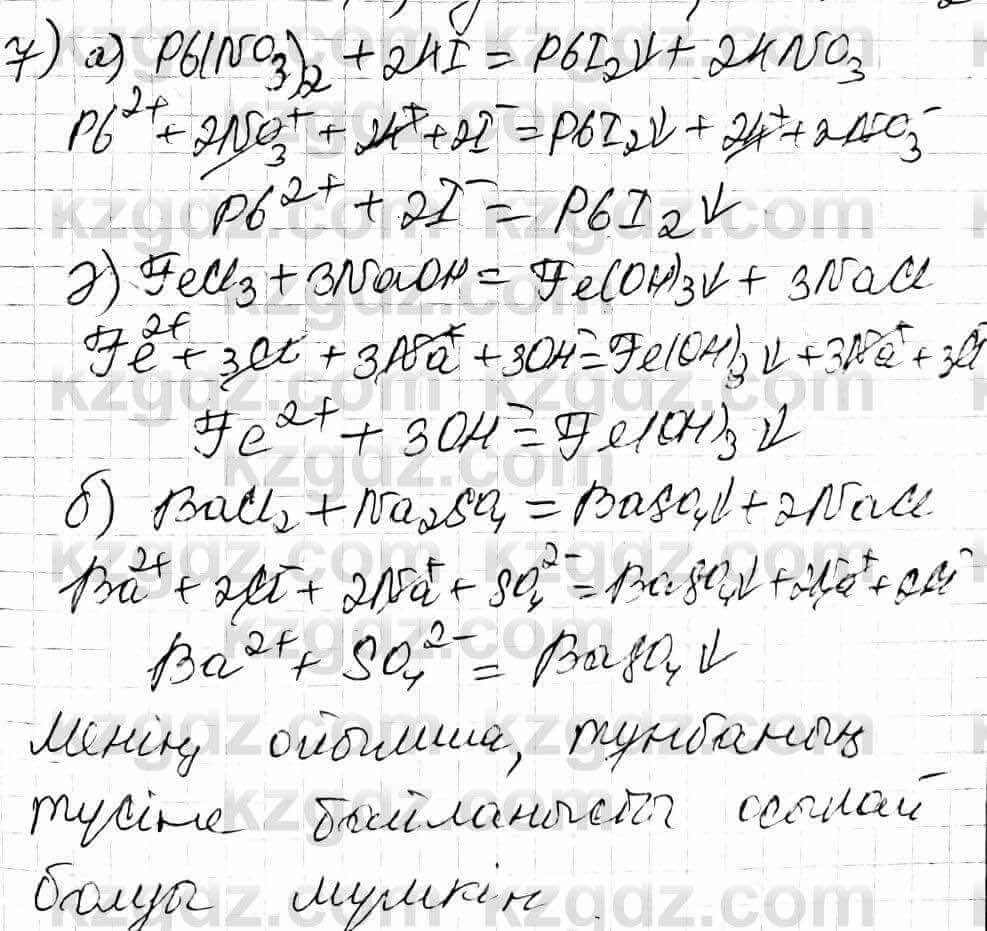 7) а) Pb(NO₃)₂ + 2KI = PbI₂↓ + 2KNO₃
Pb²⁺ + 2NO₃⁺ + 2K⁺ + 2I⁻ = PbI₂↓ + 2K⁺ + 2NO₃⁻
Pb²⁺ + 2I⁻ = PbI₂↓
ә) FeCl₃ + 3NaOH = Fe(OH)₃↓ + 3NaCl
Fe²⁺ + 3Cl⁻ + 3Na⁺ + 3OH⁻ = Fe(OH)₃↓ + 3Na⁺ + 3Cl⁻
Fe²⁺ + 3OH⁻ = Fe(OH)₃↓
б) BaCl₂ + Na₂SO₄ = BaSO₄↓ + 2NaCl
Ba²⁺ + 2Cl⁻ + 2Na⁺ + SO₄²⁻ = BaSO₄↓ + 2Na⁺ + 2Cl⁻
Ba²⁺ + SO₄²⁻ = BaSO₄↓
Менің ойымша, тұнбаның
түсіне байланысты осылай
болуы мүмкін